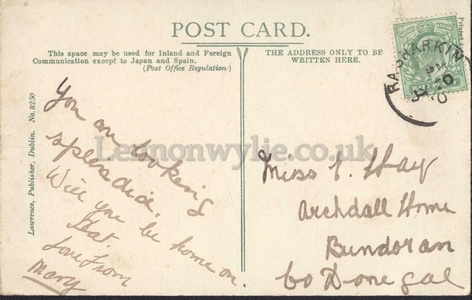 POST CARD.
This space may be used for Inland and Foreign
Communication except to Japan and Spain.
(Post Office Regulation)
THE ADDRESS ONLY TO BE
WRITTEN HERE.
Lawrence, Publisher, Dublin. No. 8250
You are looking
splendid.
Will you be home on
Sat.
Love from
Mary
RASHARKIN
Miss
Archdall Home
Bundoran
Co Donegal
Lennonwylie.co.uk